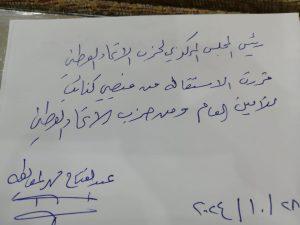 رئيس المجلس المركزي لحزب الاتحاد الوطني
قررت الاستقالة من منصبي كنائب
للامين العام ومن حزب الاتحاد الوطني
عبدالفتاح
٢٠٢٤/١٠/٢٨